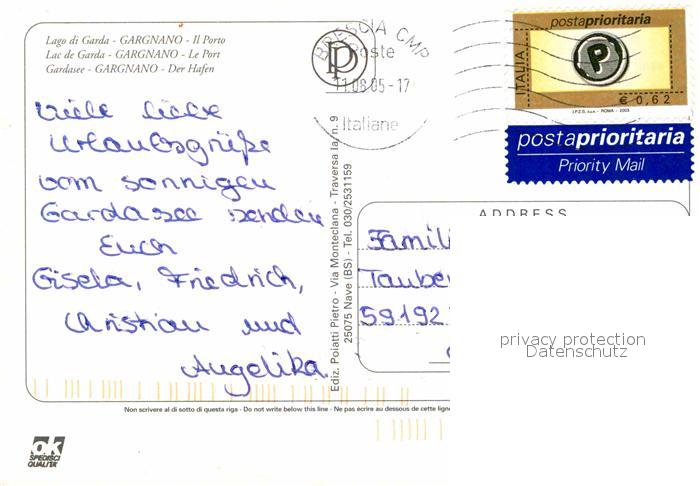 Lago di Garda - GARGNANO - Il Porto
Lac de Garda - GARGNANO - Le Port
Gardasee - GARGNANO - Der Hafen
Viele liebe
Urlaubsgrüße
vom sonnigen
Gardasee senden
Euch
Gisela, Friedrich,
Christian und
Angelika.
Ediz. Poiatti Pietro - Via Monteclana - Traversa Ia, n. 9
25075 Nave (BS) - Tel. 030/2531159
BRESCIA CMP
Poste
11.08.05-17
Italiane
PD
postaprioritaria
ITALIA
P
€ 0,62
I.P.Z.S. S.p.A. - ROMA - 2003
postaprioritaria
Priority Mail
ADDRESS
Famili
Tauber
59192
privacy protection
Datenschutz
Non scrivere al di sotto di questa riga - Do not write below this line - Ne pas écrire au dessous de cette lign
ok
SPEDISCI
QUALITÀ